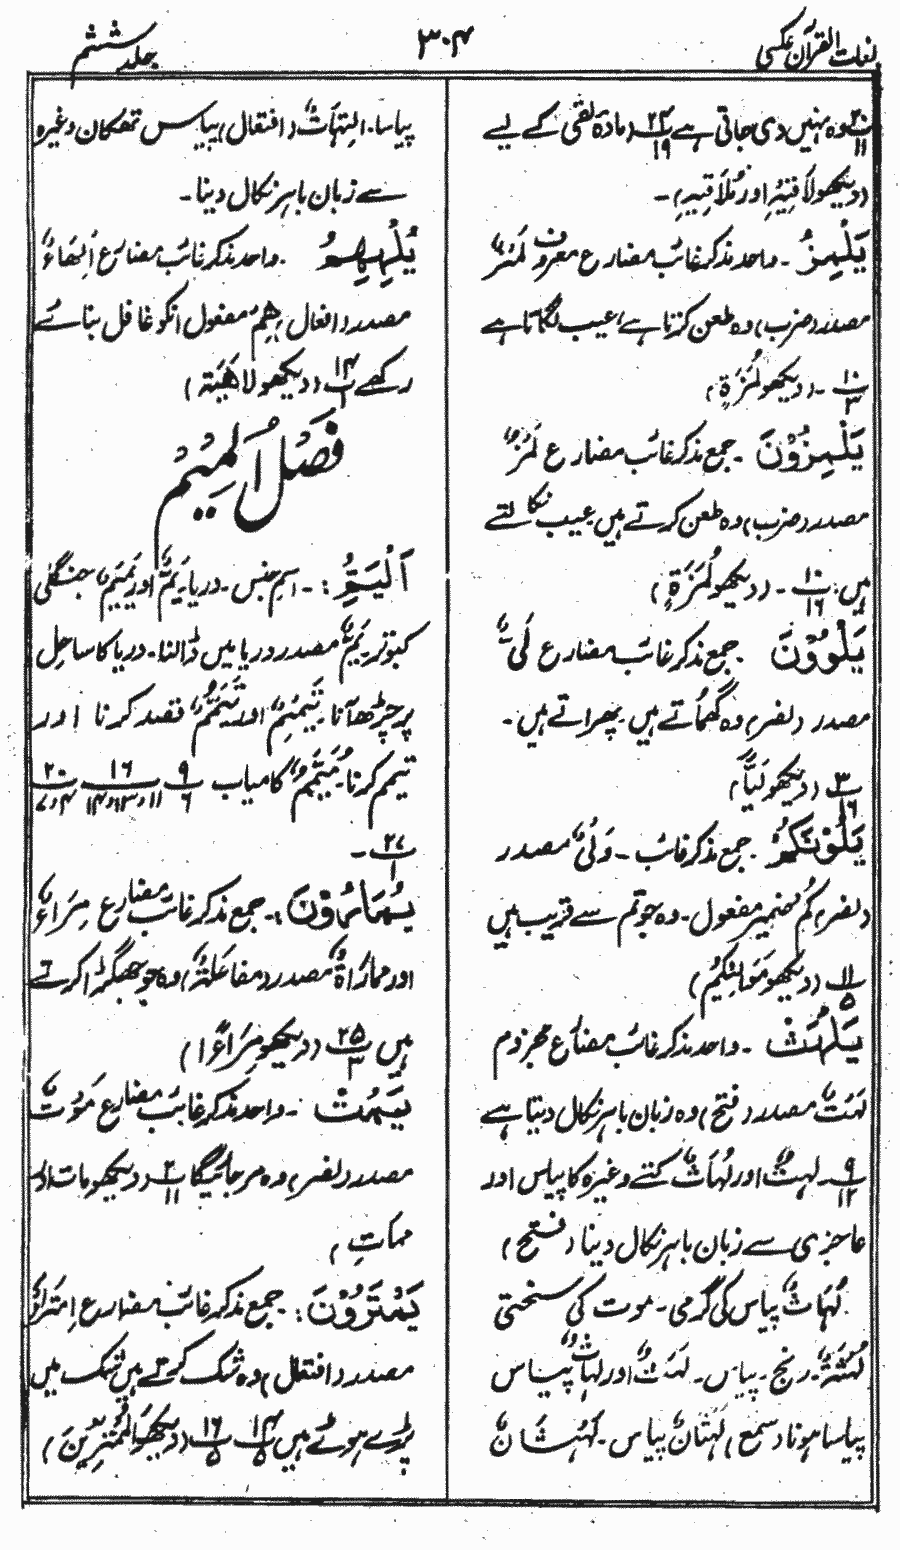 لغات القرآن عکسی
۳۰۴
جلد ششم
۲۰/۱۱ وہ نہیں دی جاتی ہے ۲۴/۱۹ (مادہ لقی کے لیے
(دیکھو لَاقِیَۃٍ اور مُلَاقِیہِ)۔
یَلْمِزُ ۔ واحد مذکر غائب مضارع معروف لَمْزٌ
مصدر (ضرب) وہ طعن کرتا ہے، عیب لگاتا ہے
۱۰/۳ ۔ (دیکھو لُمَزَۃٍ)
یَلْمِزُوْنَ ۔ جمع مذکر غائب مضارع لَمْزٌ
مصدر (ضرب) وہ طعن کرتے ہیں عیب نکالتے
ہیں۔ ۱۰/۱۶ ۔ (دیکھو لُمَزَۃٍ)
یَلْوٗوْنَ ۔ جمع مذکر غائب مضارع لَیٌّ
مصدر (نصر) وہ گھماتے ہیں۔ پھراتے ہیں۔
۳/۱۶ (دیکھو لَیًّا)
یَلُوْنَکُمْ ۔ جمع مذکر غائب ۔ وَلْیٌ مصدر
(نصر) کُمْ ضمیر مفعول۔ وہ جو تم سے قریب ہیں
۱۱/۵ (دیکھو مَوَالِیْکُمْ)
یَلْہَثْ ۔ واحد مذکر غائب مضارع مجزوم
لَہْثٌ مصدر (فتح) وہ زبان باہر نکال دیتا ہے
۹/۱۲ ۔ لَہْثٌ اور لُہَاثٌ کتے وغیرہ کا پیاس اور
عاجزی سے زبان باہر نکال دینا (فتح)
لُہَاثٌ پیاس کی گرمی۔ موت کی سختی
لُہْثَۃٌ۔ رنج۔ پیاس۔ لَہَثٌ اور لَہَاثٌ پیاس
پیاسا ہونا (سمع) لَہْثَانٌ پیاس۔ لَہْثَانٌ
پیاسا۔ اِلْتِہَاثٌ (افتعال) پیاس تھکان وغیرہ
سے زبان باہر نکال دینا۔
یُلْہِہِمُ ۔ واحد مذکر غائب مضارع اِلْھَاءٌ
مصدر (افعال) ہِمْ مفعول انکو غافل بنائے
رکھے ۱۴/۱ (دیکھو لَاھِیَۃً)
فَصْلُ الْمِیْمِ
اَلْیَمِّ :۔ اسم جنس۔ دریا۔ یَمٌّ اور یَمِیْمٌ جنگلی
کبوتر۔ یَمٌّ مصدر دریا میں ڈالنا۔ دریا کا ساحل
پر چڑھ آنا۔ تَیْمِیْمٌ اور تَیَمُّمٌ قصد کرنا اور
تیمم کرنا۔ مُیَمَّمٌ کامیاب ۹/۶ ۱۶/۱۱،۱۳،۱۴ ۲۰/۴،۷
۲۷/۱ ۔
یُمَارُوْنَ :۔ جمع مذکر غائب مضارع مِرَاءٌ
اور مُمَارَاۃٌ مصدر (مفاعلۃ) وہ جو جھگڑا کرتے
ہیں ۲۵/۳ (دیکھو مِرَاءً ا)
یَمُتْ ۔ واحد مذکر غائب مضارع مَوْتٌ
مصدر (نصر) وہ مر جائیگا ۲/۱۱ (دیکھو مات اور
ممات)
یَمْتَرُوْنَ :۔ جمع مذکر غائب مضارع اِمْتِرَاءٌ
مصدر (افتعال) وہ شک کرتے ہیں شک میں
پڑے ہوئے ہیں ۱۴/۵ ۱۶/۵ (دیکھو اَلْمُمْتَرِیْنَ)